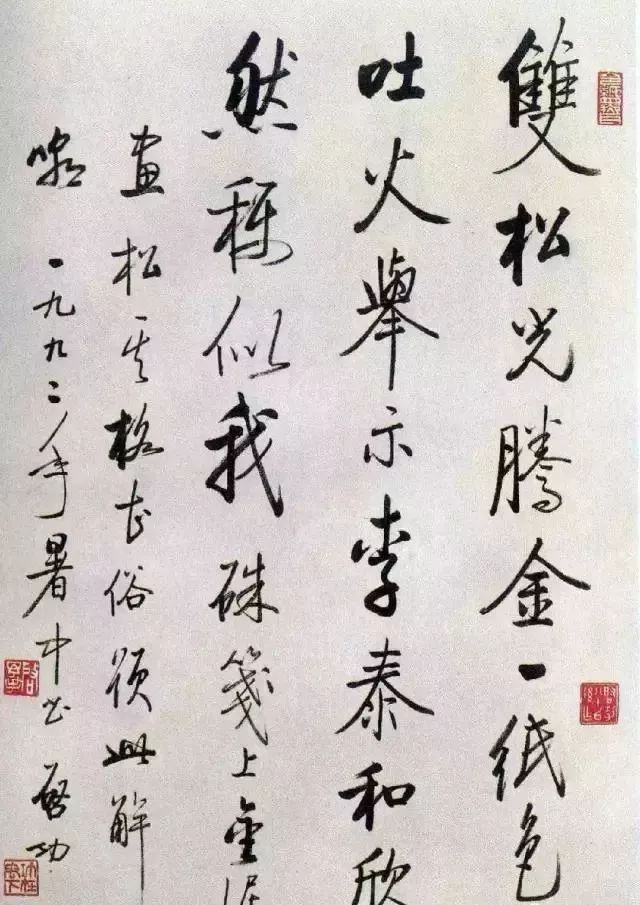 雙松光騰金一紙色
吐火舉示李泰和欣
然稱似我硃箋上金泥
畫松其格甚俗須此解
嘲一九九二年暑中書啓功